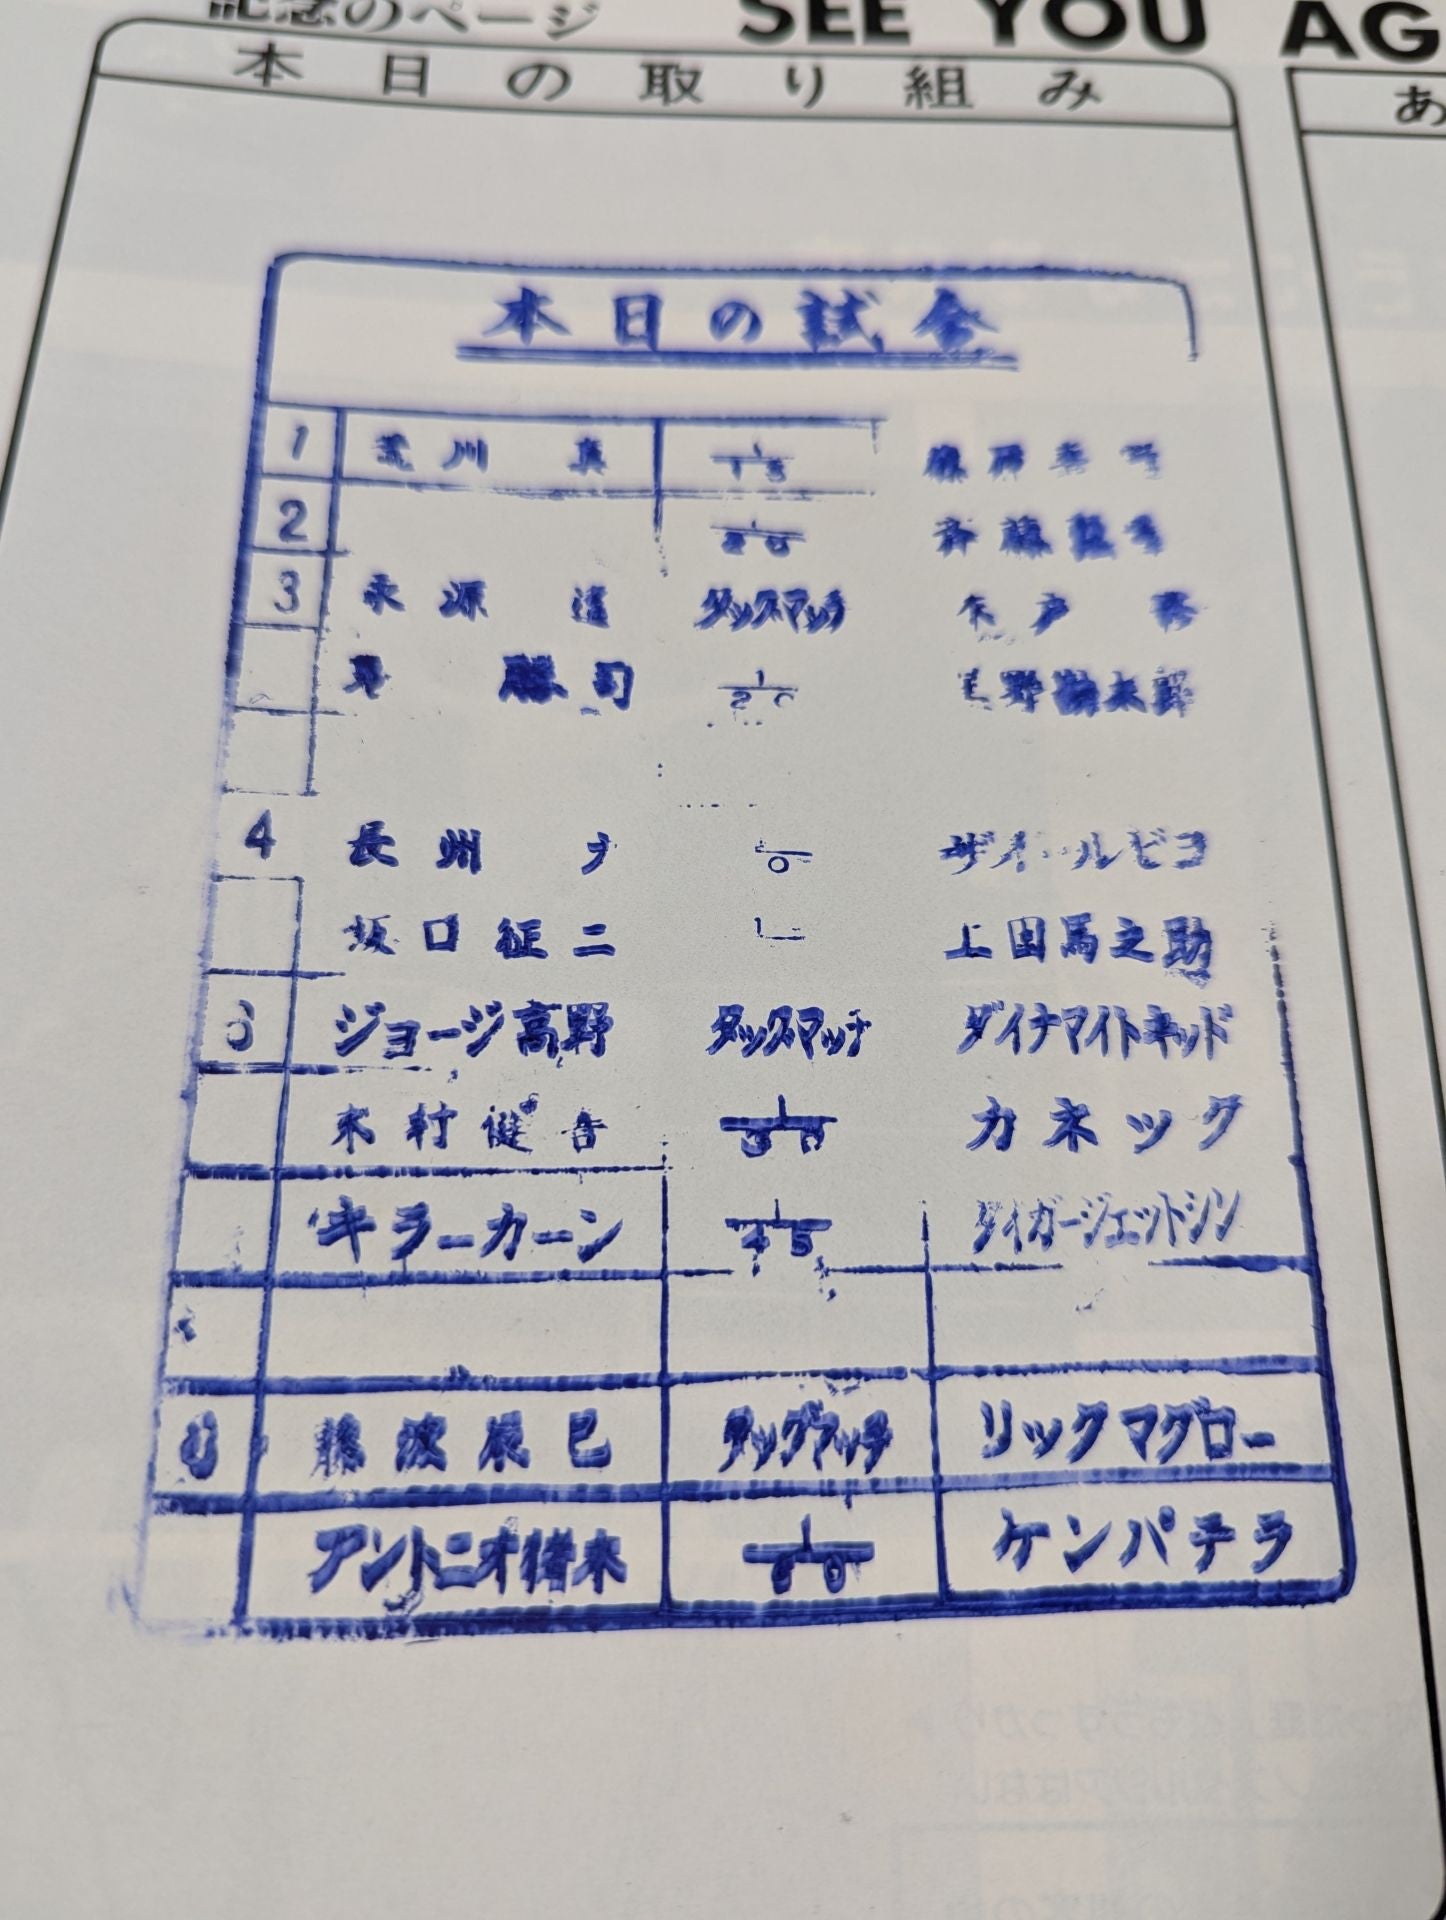 記念のページ SEE YOU AG
本日の取り組み あ
本日の試合
1 荒川 真 1 15
2 1 20
3 永源 遙 タッグマッチ 木戸 修
勝司 1 20 星野勘太郎
4 長州 力 ルビコ
坂口征二 上田馬之助
ジョージ高野 タッグマッチ ダイナマイトキッド
木村健吾 1 30 カネック
キラーカーン 1 45 タイガージェットシン
藤波辰巳 タッグマッチ リックマグロー
アントニオ猪木 1 60 ケンパテラ